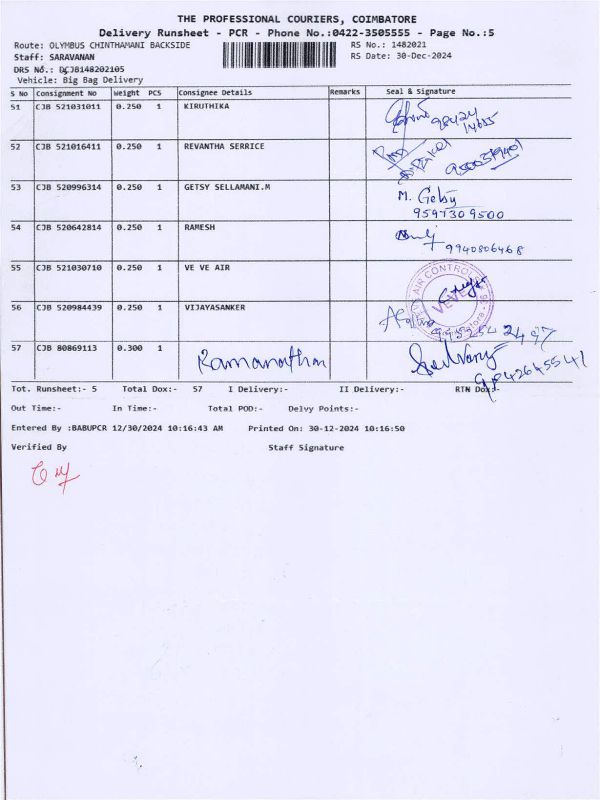 THE PROFESSIONAL COURIERS, COIMBATORE
Delivery Runsheet - PCR - Phone No.:0422-3505555 - Page No.:5
Route: OLYMBUS CHINTHAMANI BACKSIDE RS No.: 1482021
Staff: SARAVANAN RS Date: 30-Dec-2024
DRS No.: DCJB148202105
Vehicle: Big Bag Delivery
S No Consignment No Weight PCS Consignee Details Remarks Seal & Signature
51 CJB 521031011 0.250 1 KIRUTHIKA 98424
14655
52 CJB 521016411 0.250 1 REVANTHA SERRICE
53 CJB 520996314 0.250 1 GETSY SELLAMANI.M M. Getsy
9597309500
54 CJB 520642814 0.250 1 RAMESH
9940806468
55 CJB 521030710 0.250 1 VE VE AIR AIR CONTROL
VEVE
56 CJB 520984439 0.250 1 VIJAYASANKER
57 CJB 80869113 0.300 1 Ramanathan Selvaraj
9842645541
Tot. Runsheet:- 5 Total Dox:- 57 I Delivery:- II Delivery:- RTN Dox:-
Out Time:- In Time:- Total POD:- Delvy Points:-
Entered By :BABUPCR 12/30/2024 10:16:43 AM Printed On: 30-12-2024 10:16:50
Verified By Staff Signature